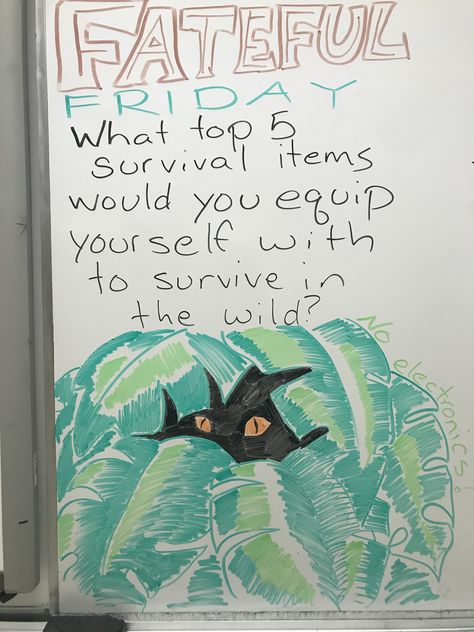 FATEFUL
FRIDAY
What top 5
survival items
would you equip
yourself with
to survive in
the wild?
No electronics!